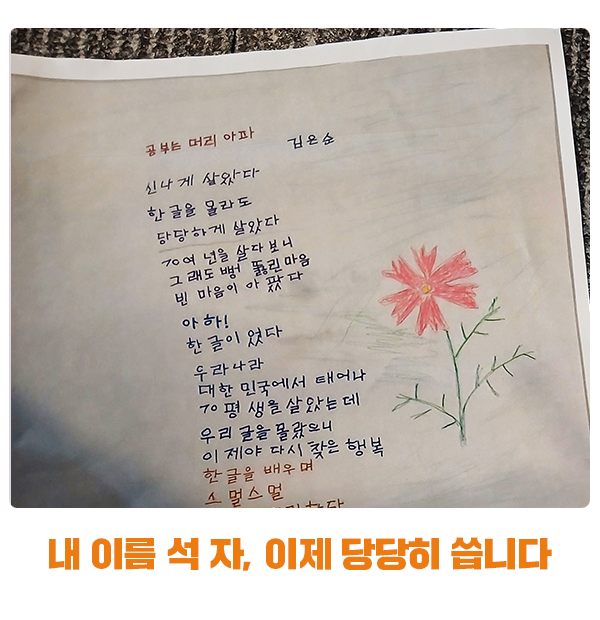 공부는 머리 아파
김은순
신나게 살았다
한글을 몰라도
당당하게 살았다
70여 년을 살다 보니
그래도 뻥 뚫린 마음
빈 마음이 아팠다
아하!
한글이었다
우리나라
대한민국에서 태어나
70평생을 살았는데
우리글을 몰랐으니
이제야 다시 찾은 행복
한글을 배우며
스멀스멀
내 이름 석 자, 이제 당당히 씁니다